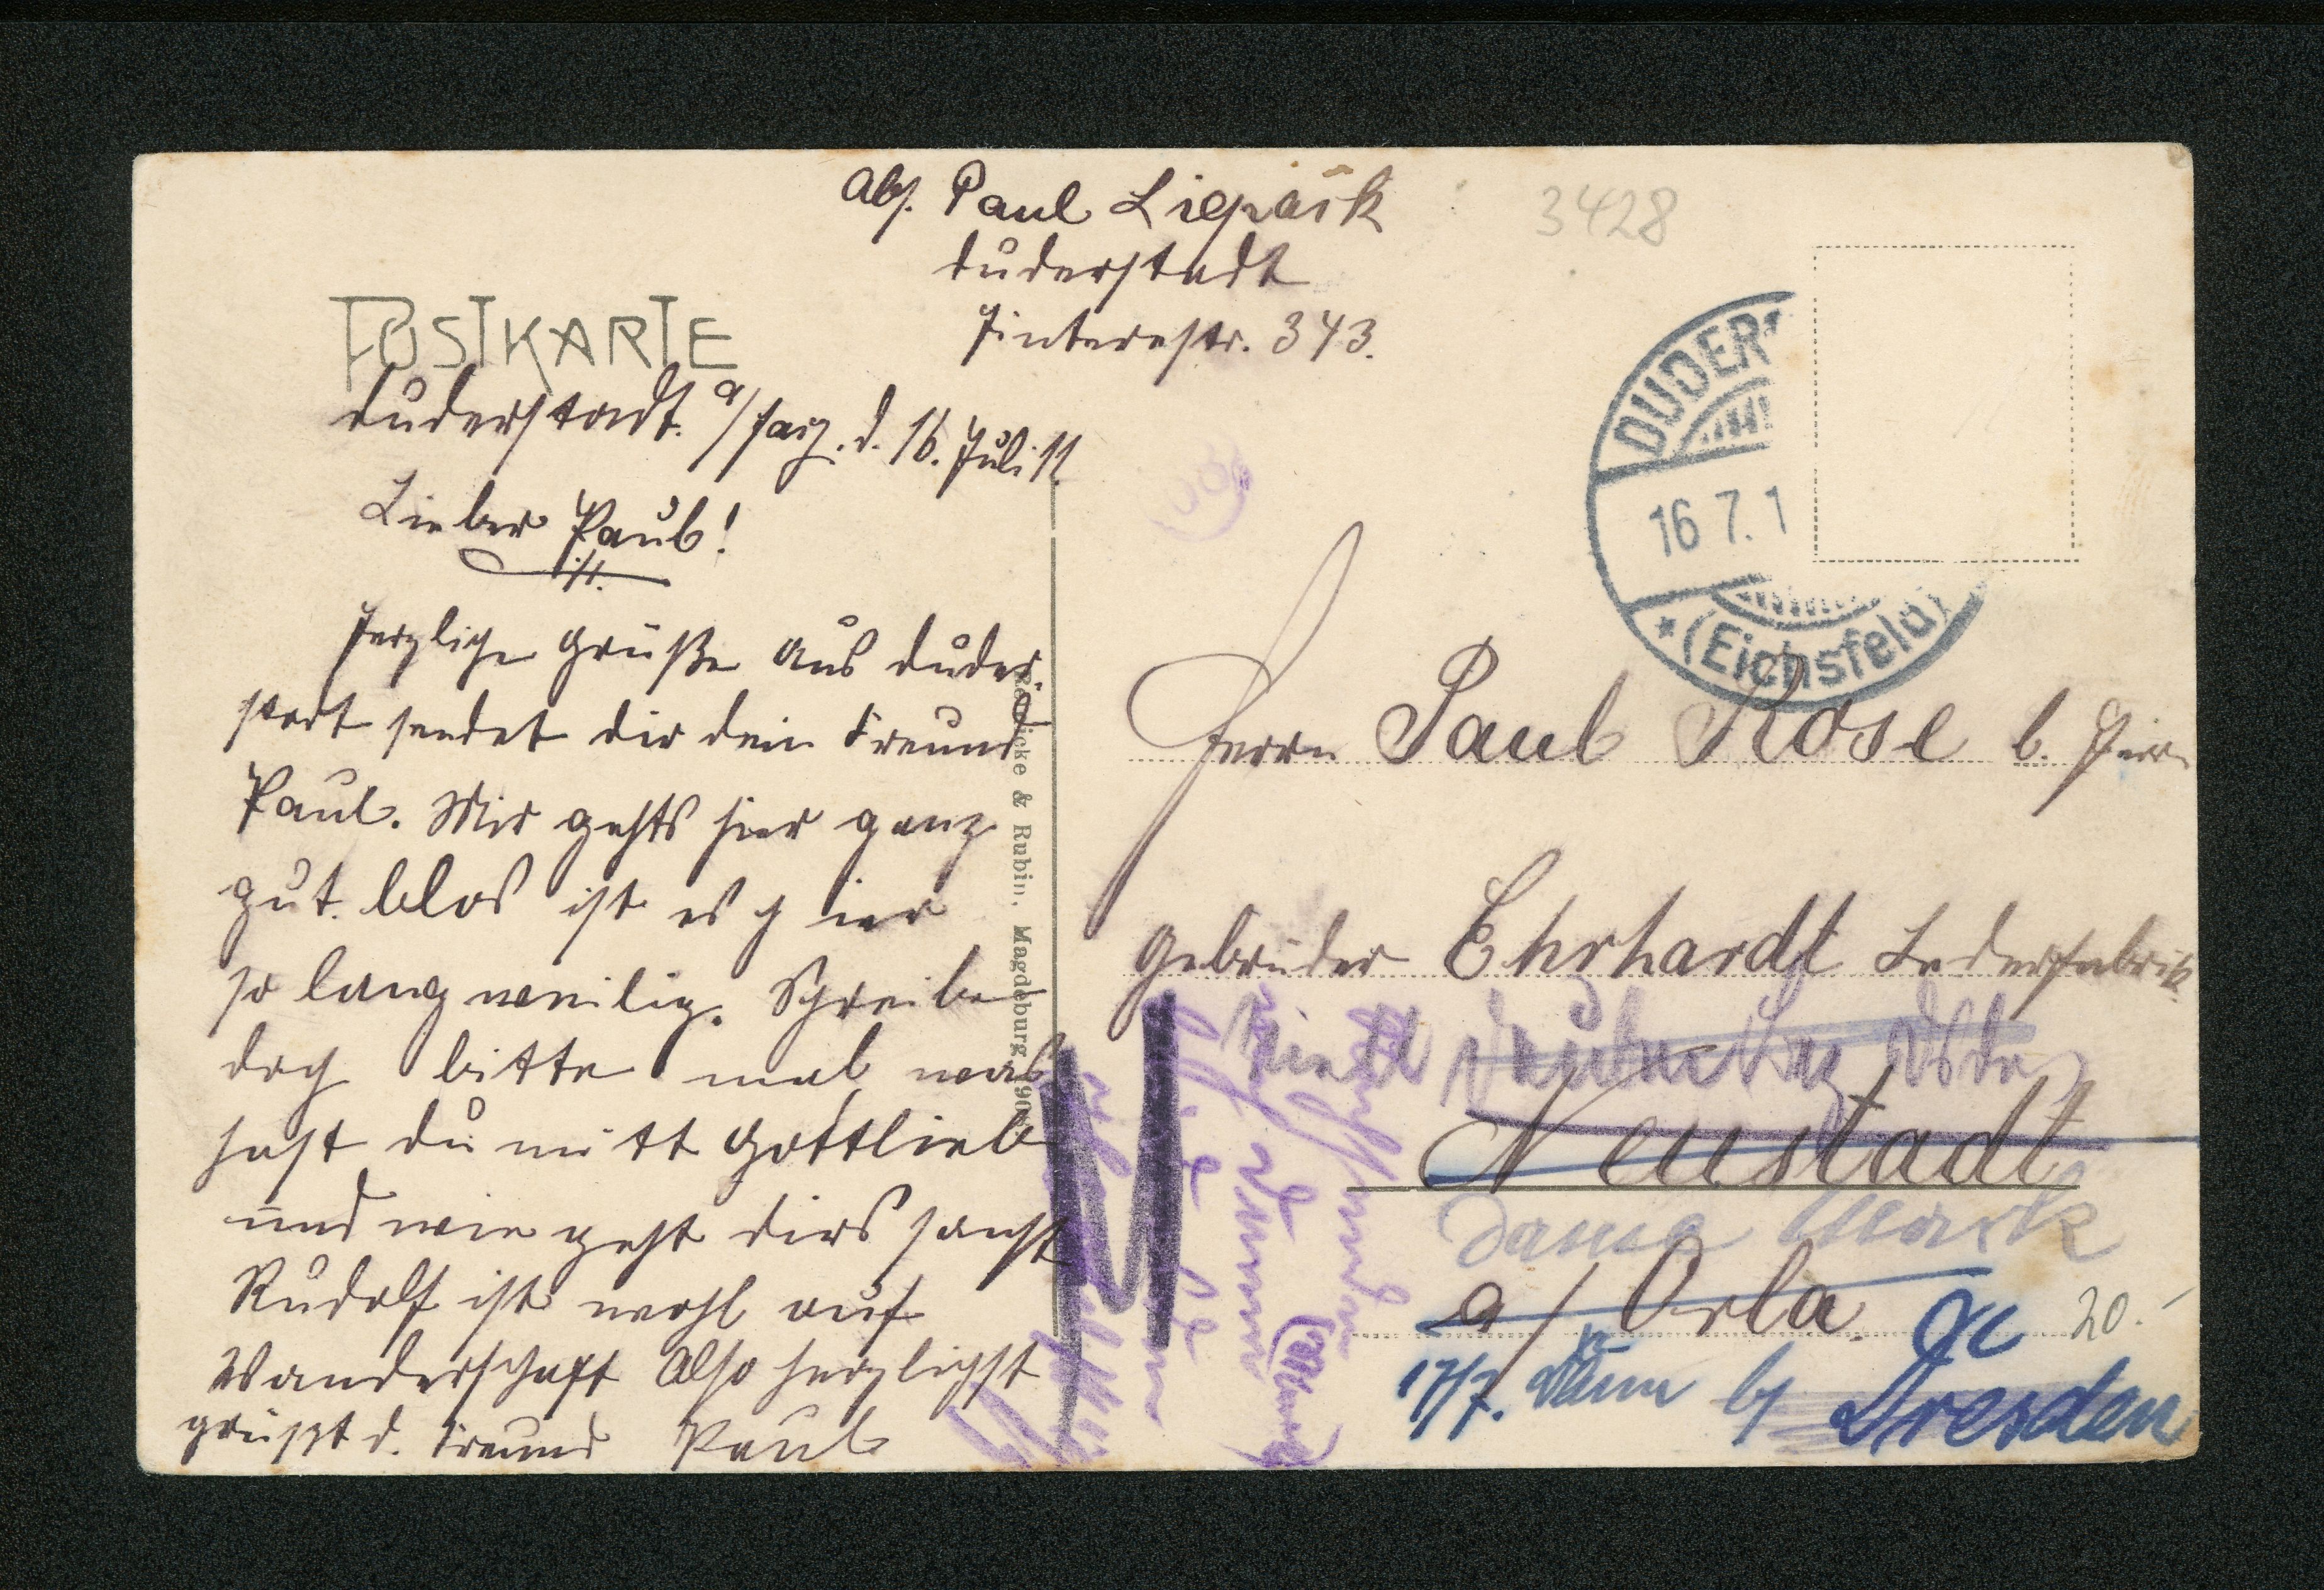 Abs. Paul Liepack
Duderstadt
Hinterstr. 343.
3428
POSTKARTE
Duderstadt. a/Harz. d. 16. Juli 11.
Lieber Paul!
Herzliche Grüße aus Duder-
stadt sendet dir dein Freund
Paul. Mir gehts hier ganz
gut. blos ist es hier
so langweilig. Schreibe
doch bitte mal was
hast du mitt Gottlieb
und wie geht dirs sonst
Rudolf ist wohl auf
Wanderschaft Also herzlichst
grüßt d. Freund Paul
& Rubin, Magdeburg
DUDERST
16 7. 1
* (Eichsfeld)
Herrn Paul Rose b. Hirr
Gebrüder Ehrhardt Lederfabrik
Neustadt
Mark
a/ Orla.
20.-
17/7.
Dresden